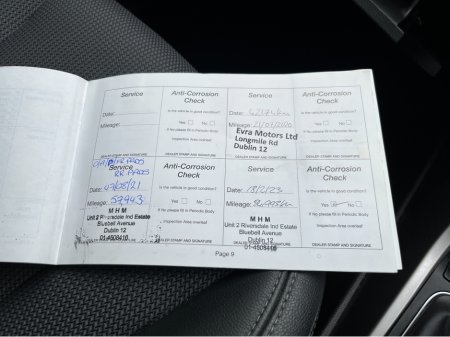 Service
Date:
Mileage:
DEALER STAMP AND SIGNATURE
Anti-Corrosion
Check
Is the vehicle in good condition?
Yes No
If No please fill in Periodic Body
Inspection Area overleaf
Service
Date:
Mileage: 21/07/2020
Evra Motors Ltd
Longmile Rd
Dublin 12
DEALER STAMP AND SIGNATURE
Anti-Corrosion
Check
Is the vehicle in good condition?
Yes No
If No please fill in Periodic Body
Inspection Area overleaf
RR PADS
Service
Date:
Mileage: 57943
M H M
Unit 2 Riversdale Ind Estate
Bluebell Avenue
Dublin 12
01-4508416
DEALER STAMP AND SIGNATURE
Anti-Corrosion
Check
Is the vehicle in good condition?
Yes No
If No please fill in Periodic Body
Inspection Area overleaf
Service
Date: 18/2/23
Mileage:
M H M
Unit 2 Riversdale Ind Estate
Bluebell Avenue
Dublin 12
01-4508416
DEALER STAMP AND SIGNATURE
Anti-Corrosion
Check
Is the vehicle in good condition?
Yes No
If No please fill in Periodic Body
Inspection Area overleaf
Page 9